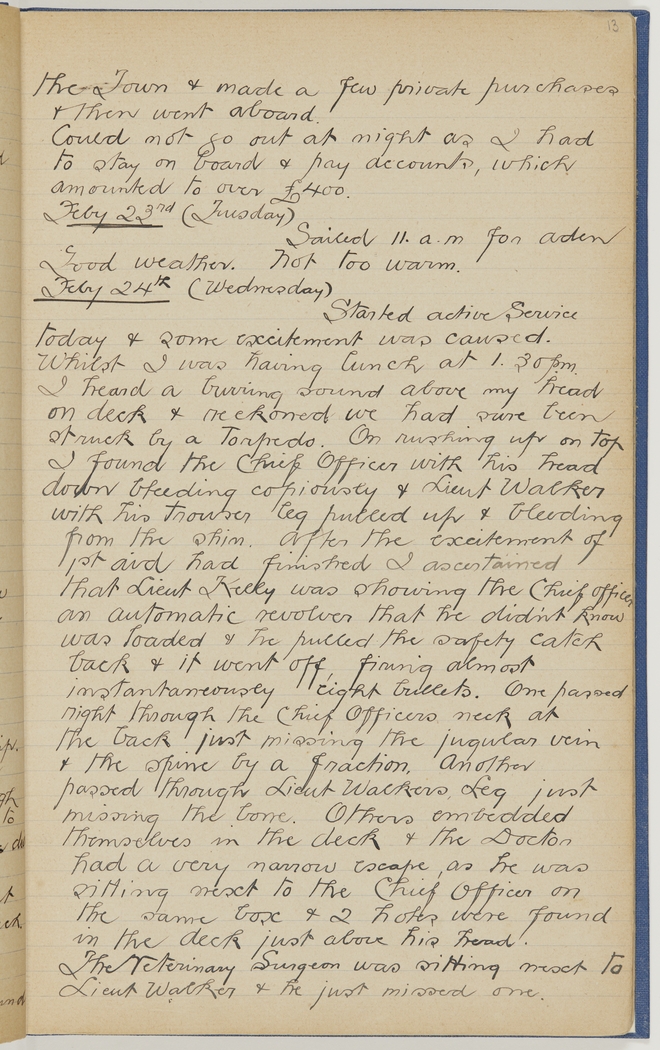 13
the Town & made a few private purchases
& then went aboard.
Could not go out at night as I had
to stay on board & pay accounts, which
amounted to over £400.
Feby 23rd (Tuesday)
Sailed 11. a.m for aden
Good weather. Not too warm.
Feby 24th (Wednesday)
Started active Service
today & some excitement was caused.
Whilst I was having lunch at 1.30pm
I heard a buring sound above my head
on deck & reckoned we had sure been
struck by a Torpedo. On rushing up on top
I found the Chief Officer with his head
down bleeding copiously & Lieut Walker
with his trouser leg pulled up & bleeding
from the shin. After the excitement of
1st aid had finished I ascertained
that Lieut Kelly was showing the Chief officer
an automatic revolver that he didn't know
was loaded & he pulled the safety catch
back & it went off, firing almost
instantaneously eight bullets. One passed
right through the Chief Officers neck at
the back just missing the jugular vein
& the spine by a fraction. Another
passed through Lieut Walkers Leg just
missing the bone. Others embedded
themselves in the deck & the Doctor
had a very narrow escape, as he was
sitting next to the Chief Officer on
the same box & 2 holes were found
in the deck just above his head.
The Veterinary Surgeon was sitting next to
Lieut Walker & he just missed one.